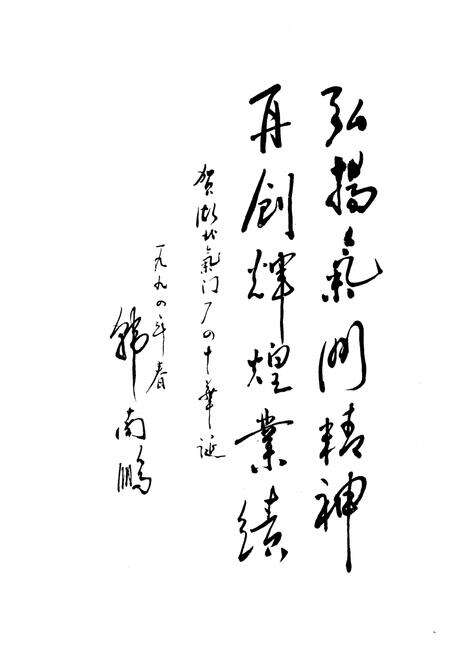 弘揚氣门精神
再創輝煌業績
贺湖北氣门厂四十華诞
一九九四年春
韓南鵬